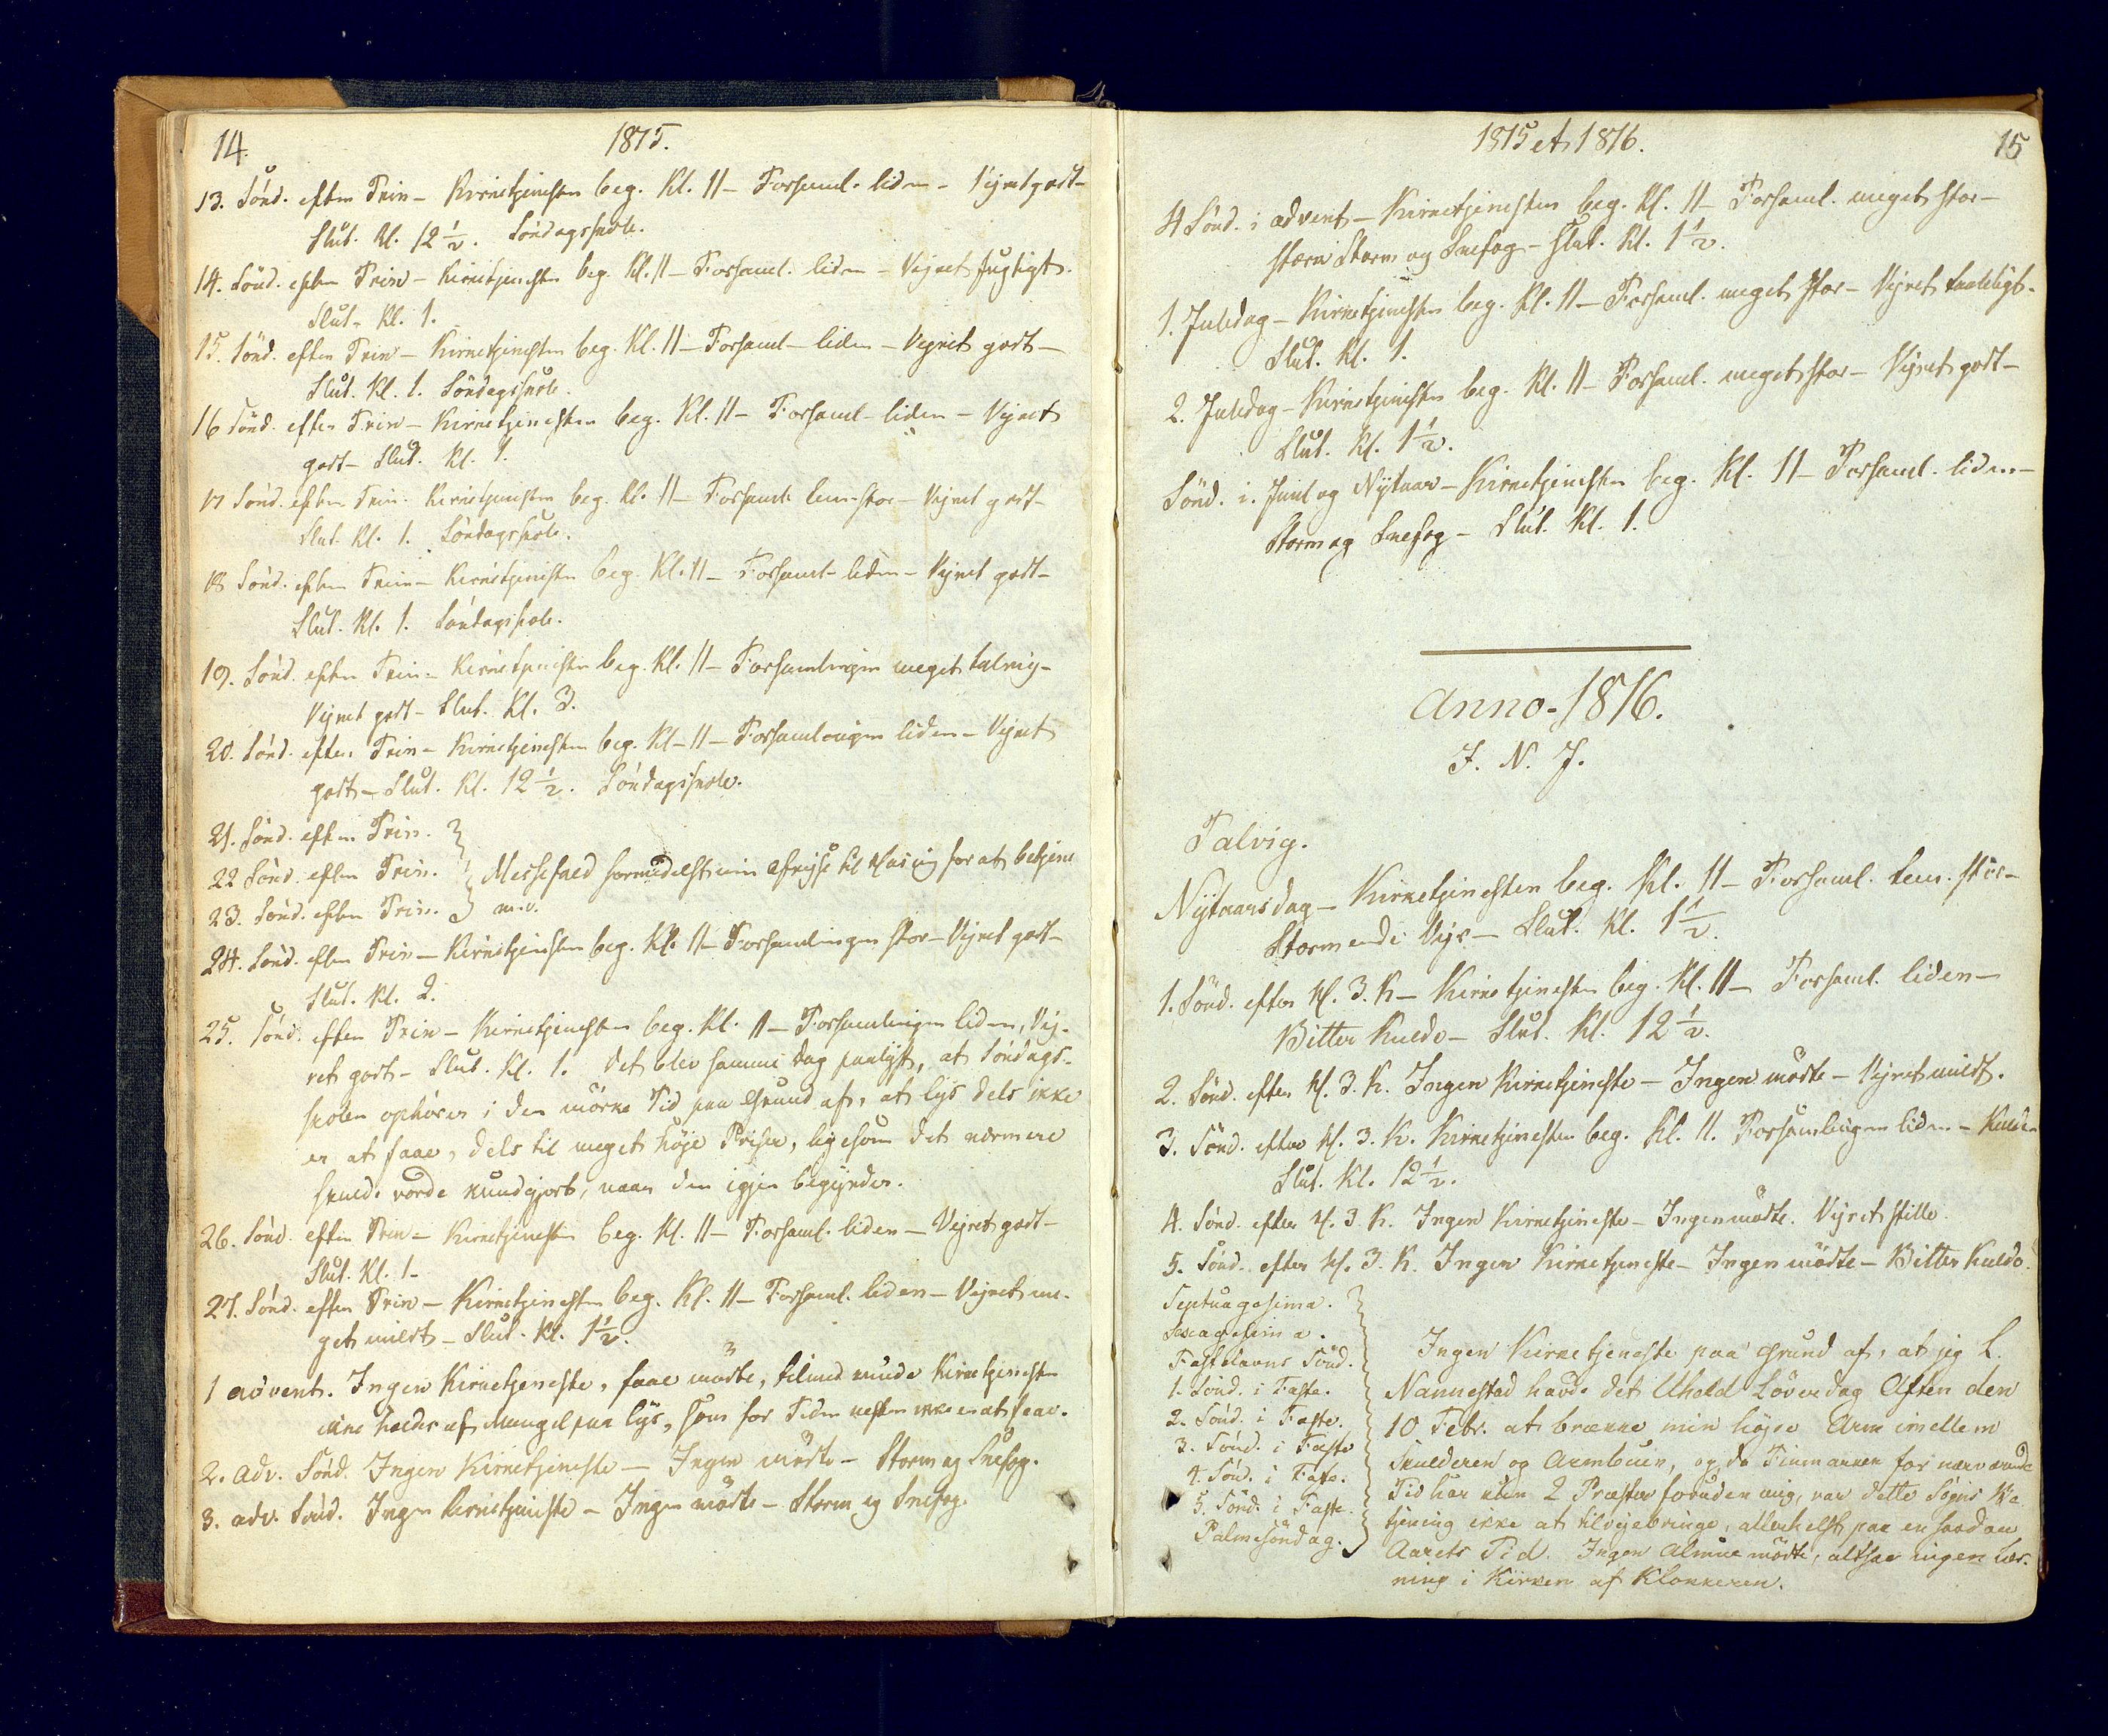 14.
1815.
13. Sönd. efter Trin – Kirketjenesten beg. Kl. 11 – Forsaml. liden – Vejret godt –
Slut. Kl. 12 1/2. Söndagsskole.
14. Sönd. efter Trin – Kirketjenesten beg. Kl. 11 – Forsaml. liden – Vejret fugtigt.
Slut. Kl. 1.
15. Sönd. efter Trin – Kirketjenesten beg. Kl. 11 – Forsaml – liden – Vejret godt –
Slut. Kl. 1. Söndagsskole.
16 Sönd. efter Trin – Kirketjenesten beg. Kl. 11 – Forsaml – liden – Vejret
godt – Slut. Kl. 1.
17 Sönd. efter Trin. Kirketjenesten beg. Kl. 11 – Forsaml. tem. stor – Vejret godt –
Slut. Kl. 1. Söndagsskole.
18 Sönd. efter Trin – Kirketjenesten beg. Kl. 11 – Forsaml – liden – Vejret godt –
Slut. Kl. 1. Söndagsskole.
19. Sönd. efter Trin – Kirketjenesten beg. Kl. 11 – Forsamlingen meget talrig –
Vejret godt – Slut. Kl. 3.
20. Sönd. efter Trin – Kirketjenesten beg. Kl – 11 – Forsamlingen liden – Vejret
godt – Slut. Kl. 12 1/2. Söndagsskole.
21. Sönd. efter Trin.
22 Sönd. efter Trin. Messefald formedelst min Afrejse til for at betjene
23. Sönd. efter Trin. m.v.
24. Sönd. efter Trin – Kirketjenesten beg. Kl. 11 – Forsamlingen stor – Vejret godt –
Slut. Kl. 2.
25. Sönd. efter Trin – Kirketjenesten beg. Kl. 11 – Forsamlingen liden, Vej-
ret godt – Slut. Kl. 1. Det blev samme Dag paalyst, at Söndags-
skolen ophörer i den mörke Tid paa Grund af, at Lys dels ikke
er at faae, dels til meget höje Priser, ligesom det nærmere
skulde vorde kundgjort, naar den igjen begynder.
26. Sönd. efter Trin – Kirketjenesten beg. Kl. 11 – Forsaml. liden – Vejret godt –
Slut. Kl. 1 –
27. Sönd. efter Trin – Kirketjenesten beg. Kl. 11 – Forsaml. liden – Vejret me-
get mildt – Slut. Kl. 1 1/2.
1 Advent. Ingen Kirketjeneste, faae mödte, tilmed kunde Kirketjenesten
ikke holdes af Mangel paa Lys, som for Tiden næsten ikke er at faae.
2. Adv. Sönd. Ingen Kirketjeneste – Ingen mödte – Storm og Snefog.
3. Adv. Sönd. Ingen Kirketjeneste – Ingen mödte – Storm og Snefog.
1815 et 1816.
15
4 Sönd. i Advent – Kirketjenesten beg. Kl. 11 – Forsaml. meget stor –
stærk Storm og Snefog – Slut. Kl. 1 1/2.
1. Juledag – Kirketjenesten beg. Kl. 11 – Forsaml. meget stor – Vejret taaleligt.
Slut. Kl. 1.
2. Juledag – Kirketjenesten beg. Kl. 11 – Forsaml. meget stor – Vejret godt –
Slut. Kl. 1 1/2.
Sönd. i. Juul og Nytaar – Kirketjenesten beg. Kl. 11 – Forsaml. liden –
Storm og Snefog – Slut. Kl. 1.
Anno – 1816.
I. N. J.
Talvig.
Nytaarsdag – Kirketjenesten beg. Kl. 11 – Forsaml. tem. stor –
Stormende Vejr – Slut. Kl. 1 1/2.
1. Sönd. efter H. 3. K – Kirketjenesten beg. Kl. 11 – Forsaml. liden –
Bitter Kulde – Slut. Kl. 12 1/2.
2. Sönd. efter H. 3. K. Ingen Kirketjeneste – Ingen mödte – Vejret mildt.
3. Sönd. efter H. 3. K. Kirketjenesten beg. Kl. 11. Forsamlingen liden – Kulde
Slut. Kl. 12 1/2.
4. Sönd. efter H. 3. K. Ingen Kirketjeneste – Ingen mödte. Vejret stille.
5. Sönd. efter H. 3. K. Ingen Kirketjeneste – Ingen mödte – Bitter Kulde.
Septuagesima.
Sexagesima.
Fastelavns Sönd.
1. Sönd. i Faste.
2. Sönd. i Faste.
3. Sönd. i Faste
4. Sön. i Faste.
5. Sönd. i Faste.
Palmesöndag.
Ingen Kirketjeneste paa Grund af, at jeg L.
Nannestad havde det Uheld Löverdag Aften den
10 Febr. at brække min höjre Arm imellem
Skulderen og Armbuen, og da Finmarken for nærværende
Tid har kun 2 Præster foruden mig, var dette Sogns Be-
tjening ikke at tilvejebringe, allerhelst paa en saadan
Aarets Tid. Ingen Almue mödte, altsaa ingen Læs-
ning i Kirken af Klokkeren.